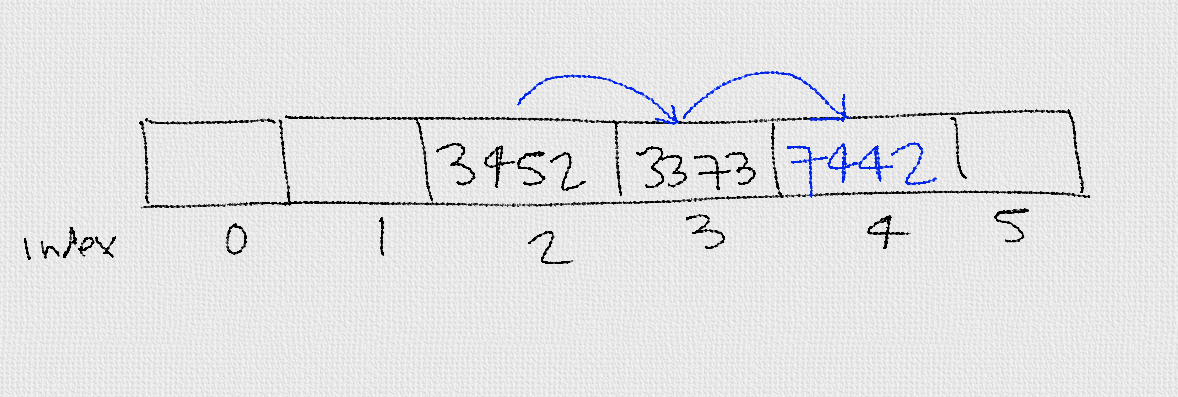 3452 3373 7442
Index 0 1 2 3 4 5